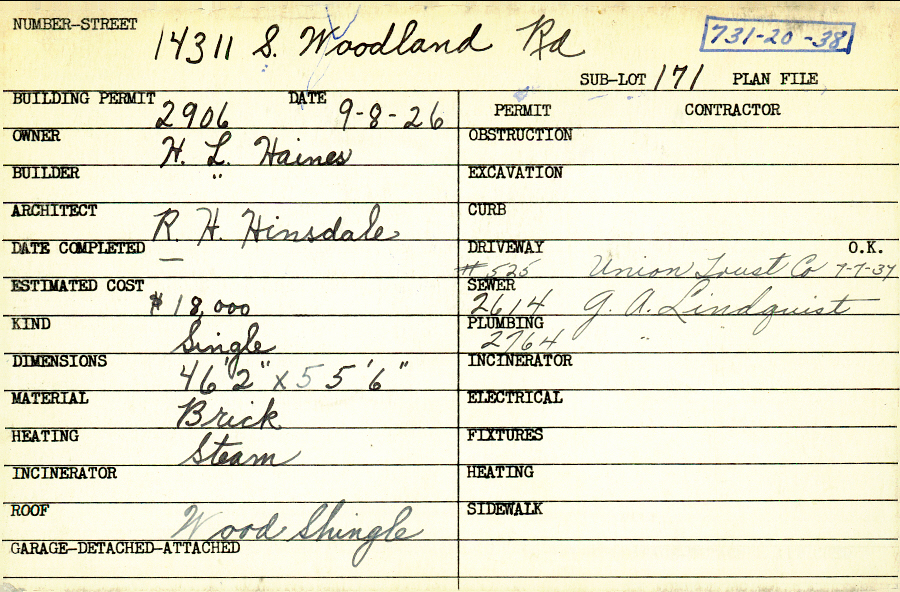 NUMBER-STREET 14311 S. Woodland Rd 731-20-38
SUB-LOT 171 PLAN FILE
BUILDING PERMIT 2906 DATE 9-8-26
OWNER H. L. Haines
BUILDER "
ARCHITECT R. H. Hinsdale
DATE COMPLETED —
ESTIMATED COST $18,000
KIND Single
DIMENSIONS 46'2" x 55'6"
MATERIAL Brick
HEATING Steam
INCINERATOR
ROOF Wood Shingle
GARAGE-DETACHED-ATTACHED
PERMIT CONTRACTOR
OBSTRUCTION
EXCAVATION
CURB
DRIVEWAY O.K.
# 525 Union Trust Co 7-7-37
SEWER 2614 G. A. Lindquist
PLUMBING 2764 "
INCINERATOR
ELECTRICAL
FIXTURES
HEATING
SIDEWALK